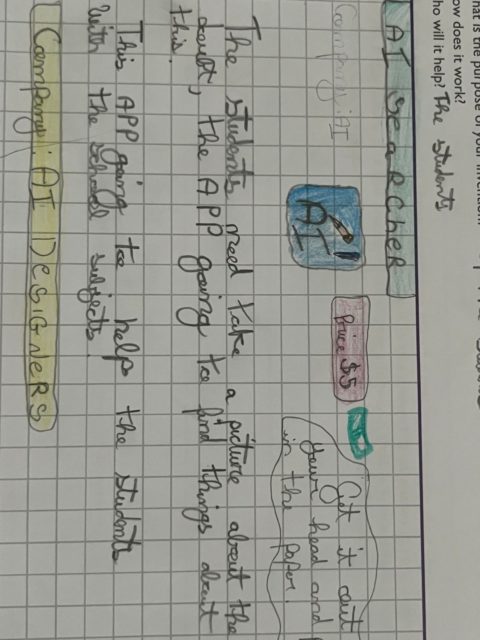 hat is the purpose of your invention
ow does it work?
ho will it help? The students
AI SeARCHeR
Company: AI
AI
Price $5
Get it out
your head and
in the paper.
The students need take a picture about the
doubt, the APP going to find things about
this.
This APP going to help the students
with the school subjects
Company: AI DeSIGNeRS